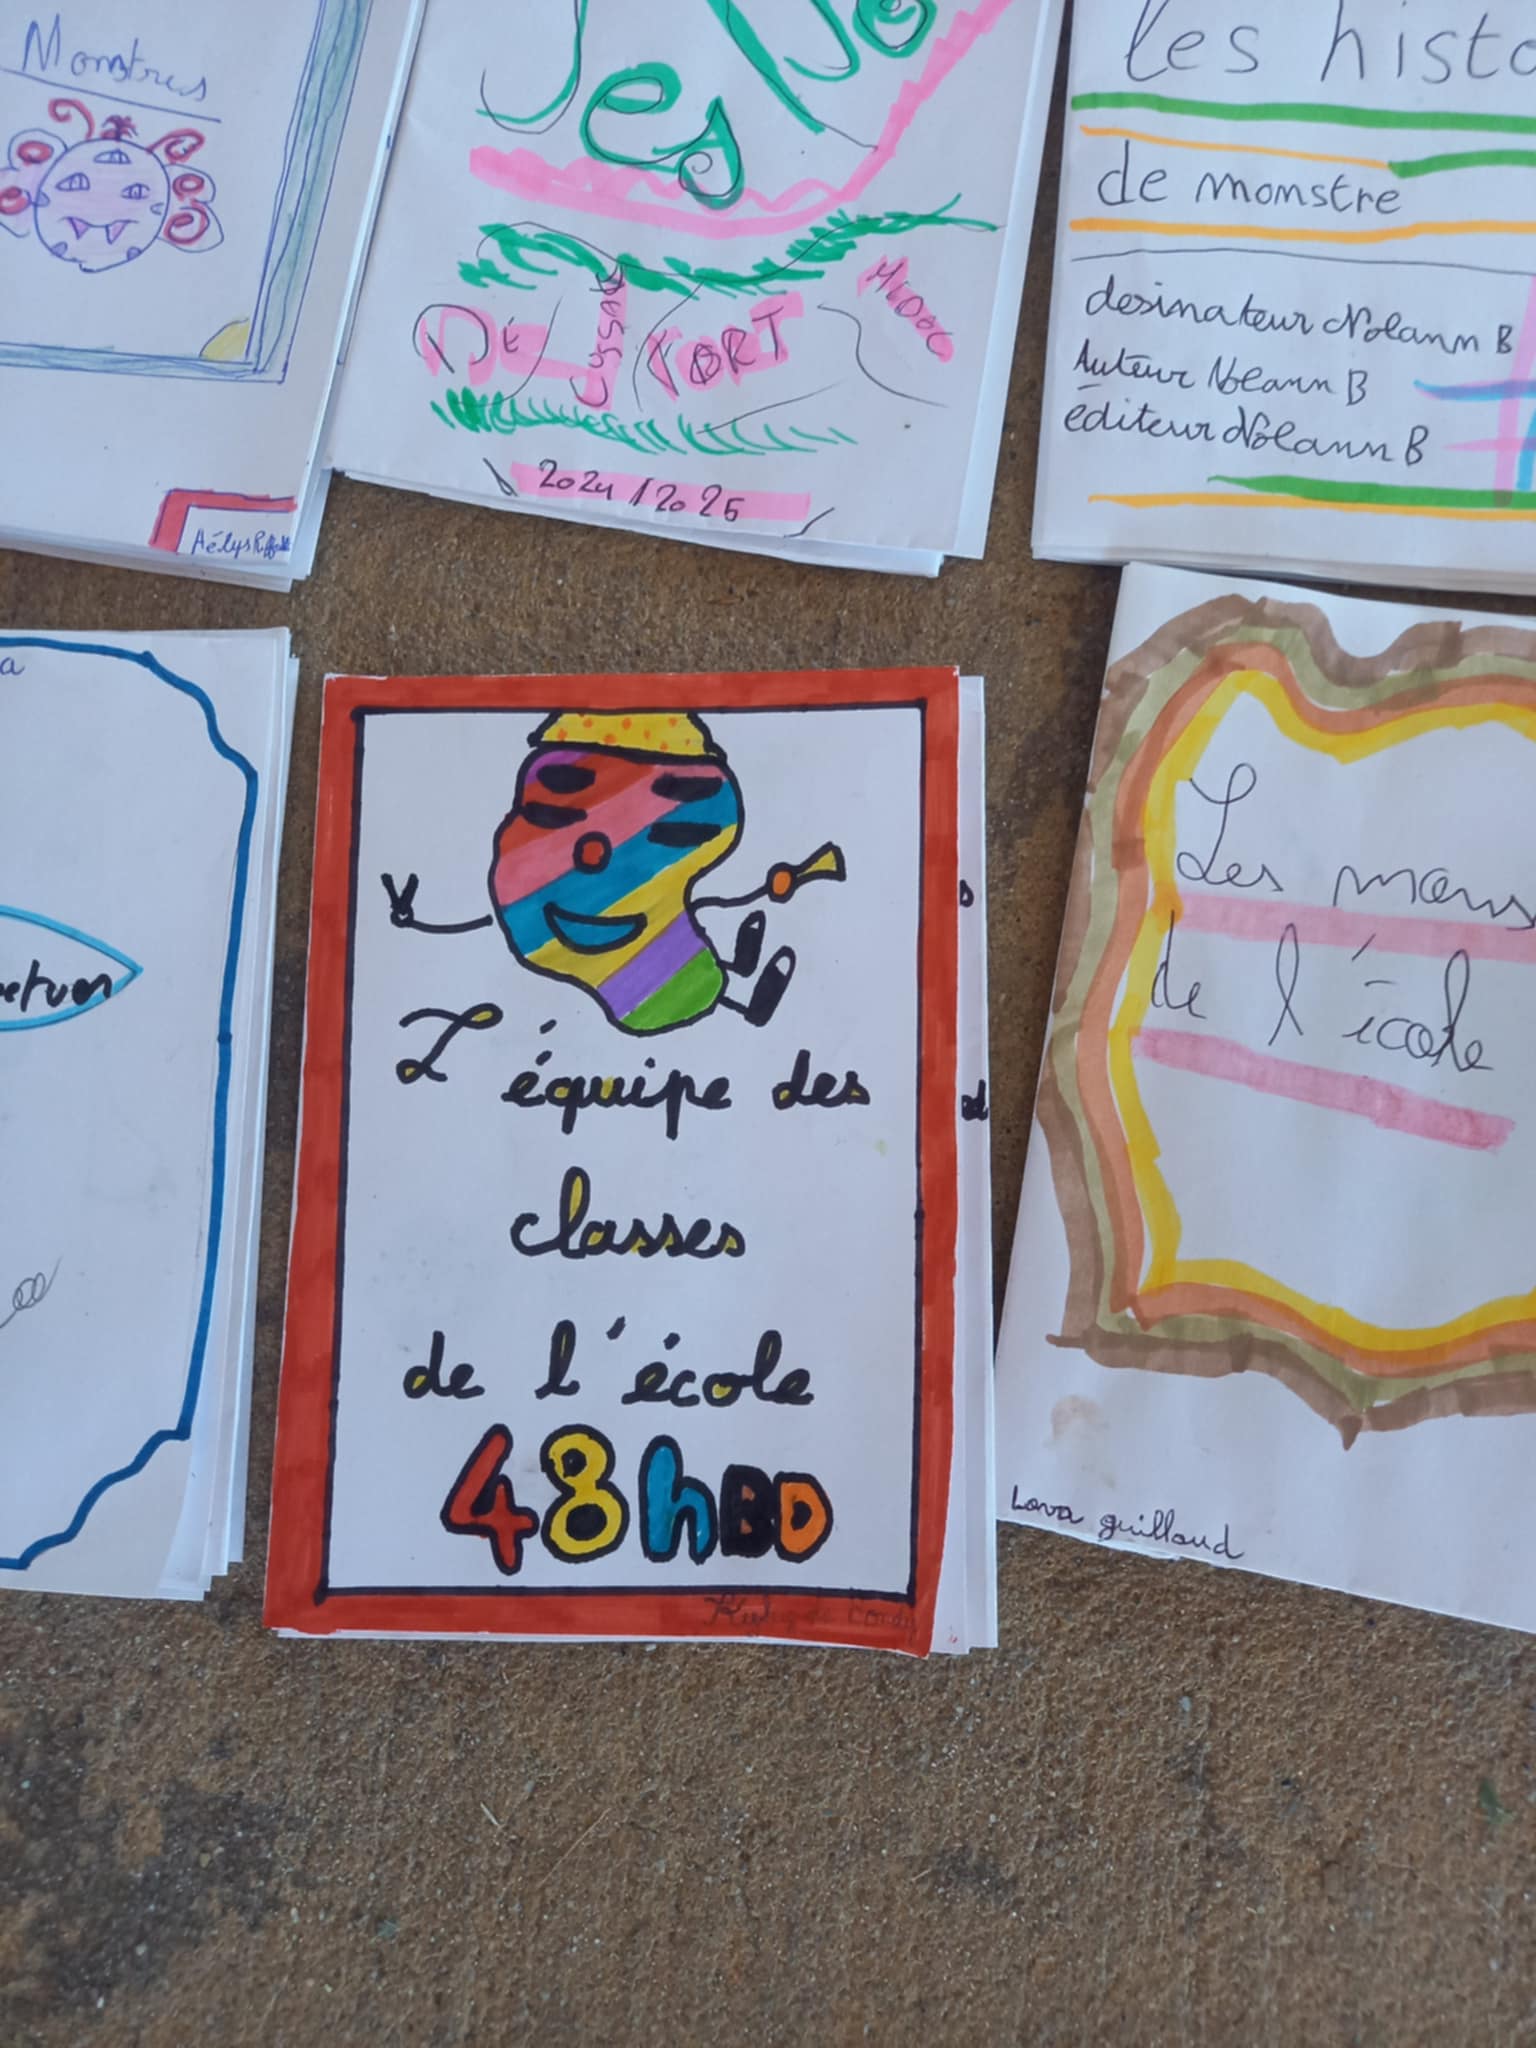 Monstres
Aélys
Les
DE CUSSAC FORT MEDOC
2024/2025
les histo
de monstre
desinateur Nolann B
Auteur Nolann B
éditeur Nolann B
a
L'équipe des
classes
de l'école
48hBD
Les mons
de l'école
Lova guilloud